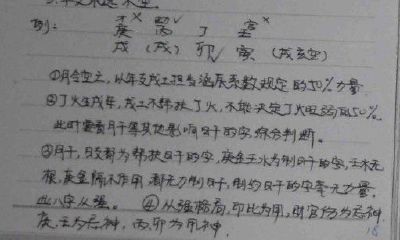 例: 庚 丙 丁 壬
戌 (戌) 卯 寅 (戌亥空)
①月令空亡,从年支戌土担当
规定的50%力量
②丁火生戌年,戌土不帮扶丁火,不能决定丁火旺弱的50%。
此时要看月干等其他影响日干的字综合判断。
③月干,日支都为帮扶日干的字,庚金壬水为制日干的字,壬水无
根,庚金隔不作用,都无力制日干,制约日干的字等无力量,
此八字从强。 ④从强格局,印比为用,财官伤为忌神,
庚、壬为忌神,丙、卯为用神。